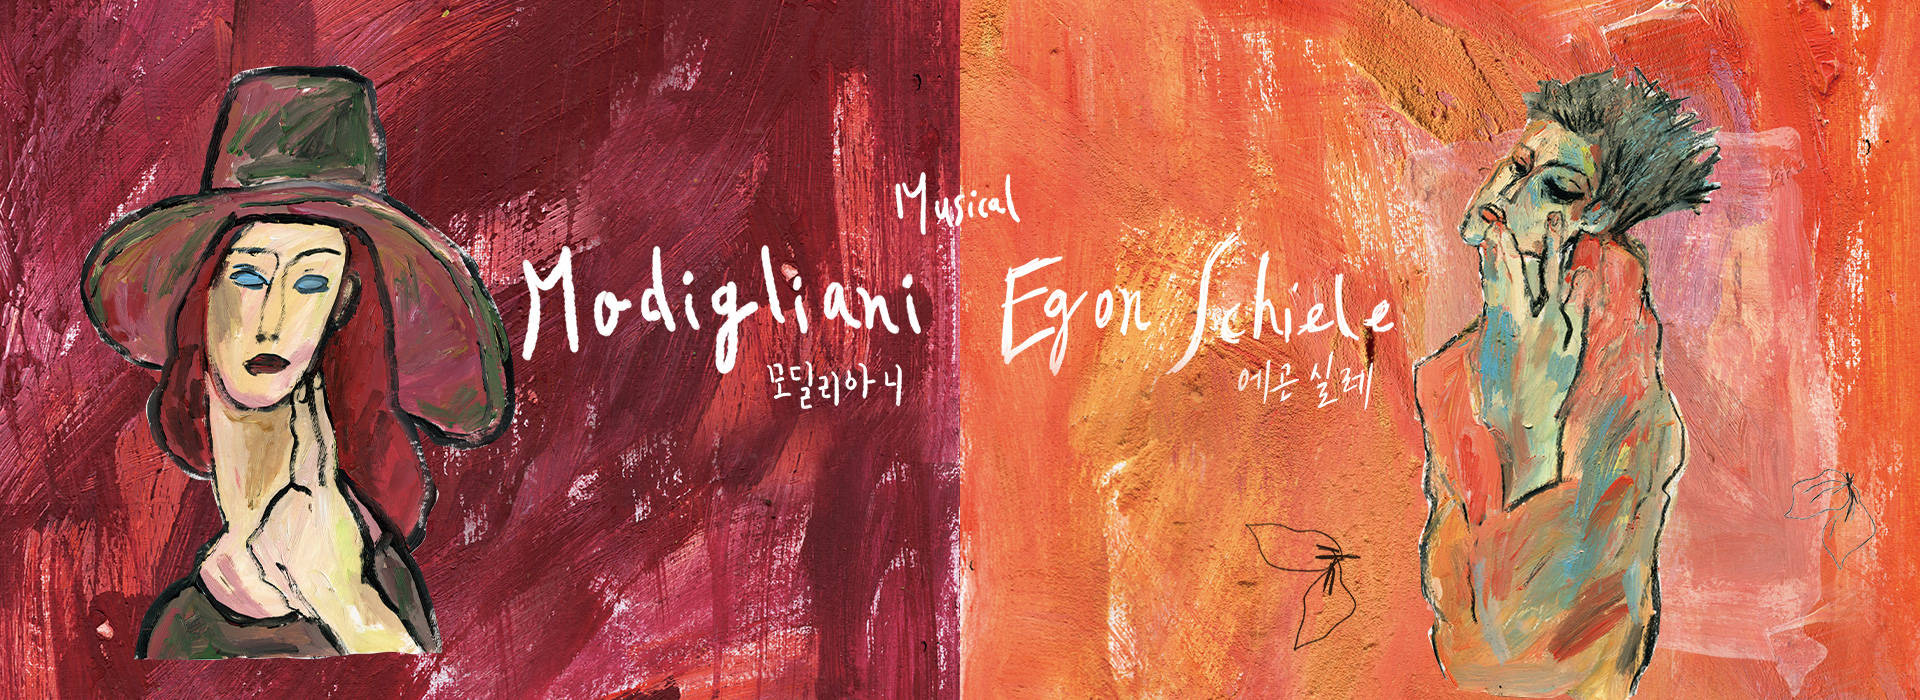 Musical
Modigliani
모딜리아니
Egon Schiele
에곤 실레